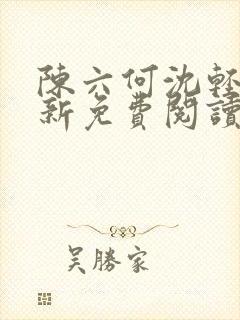 陳六何沈輕
新免費閱讀
吴勝家